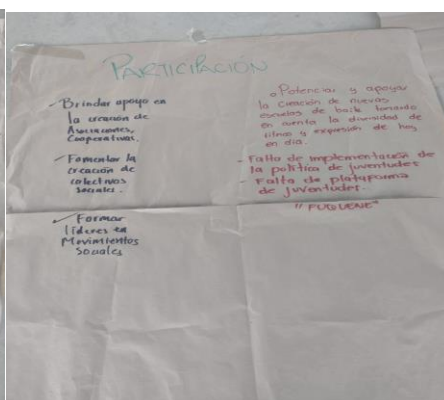 PARTICIPACIÓN
- Brindar apoyo en
la creación de
Asociaciones,
Cooperativas.
- Fomentar la
creación de
colectivos
sociales.
- Formar
líderes en
Movimientos
Sociales
- Potenciar y apoyar
la creación de nuevas
escuelas de baile tomando
en cuenta la diversidad de
ritmos y expresión de hoy
en día.
- Falta de implementación de
la política de juventudes
- Falta de plataforma
de juventudes.
"FUQUENE"